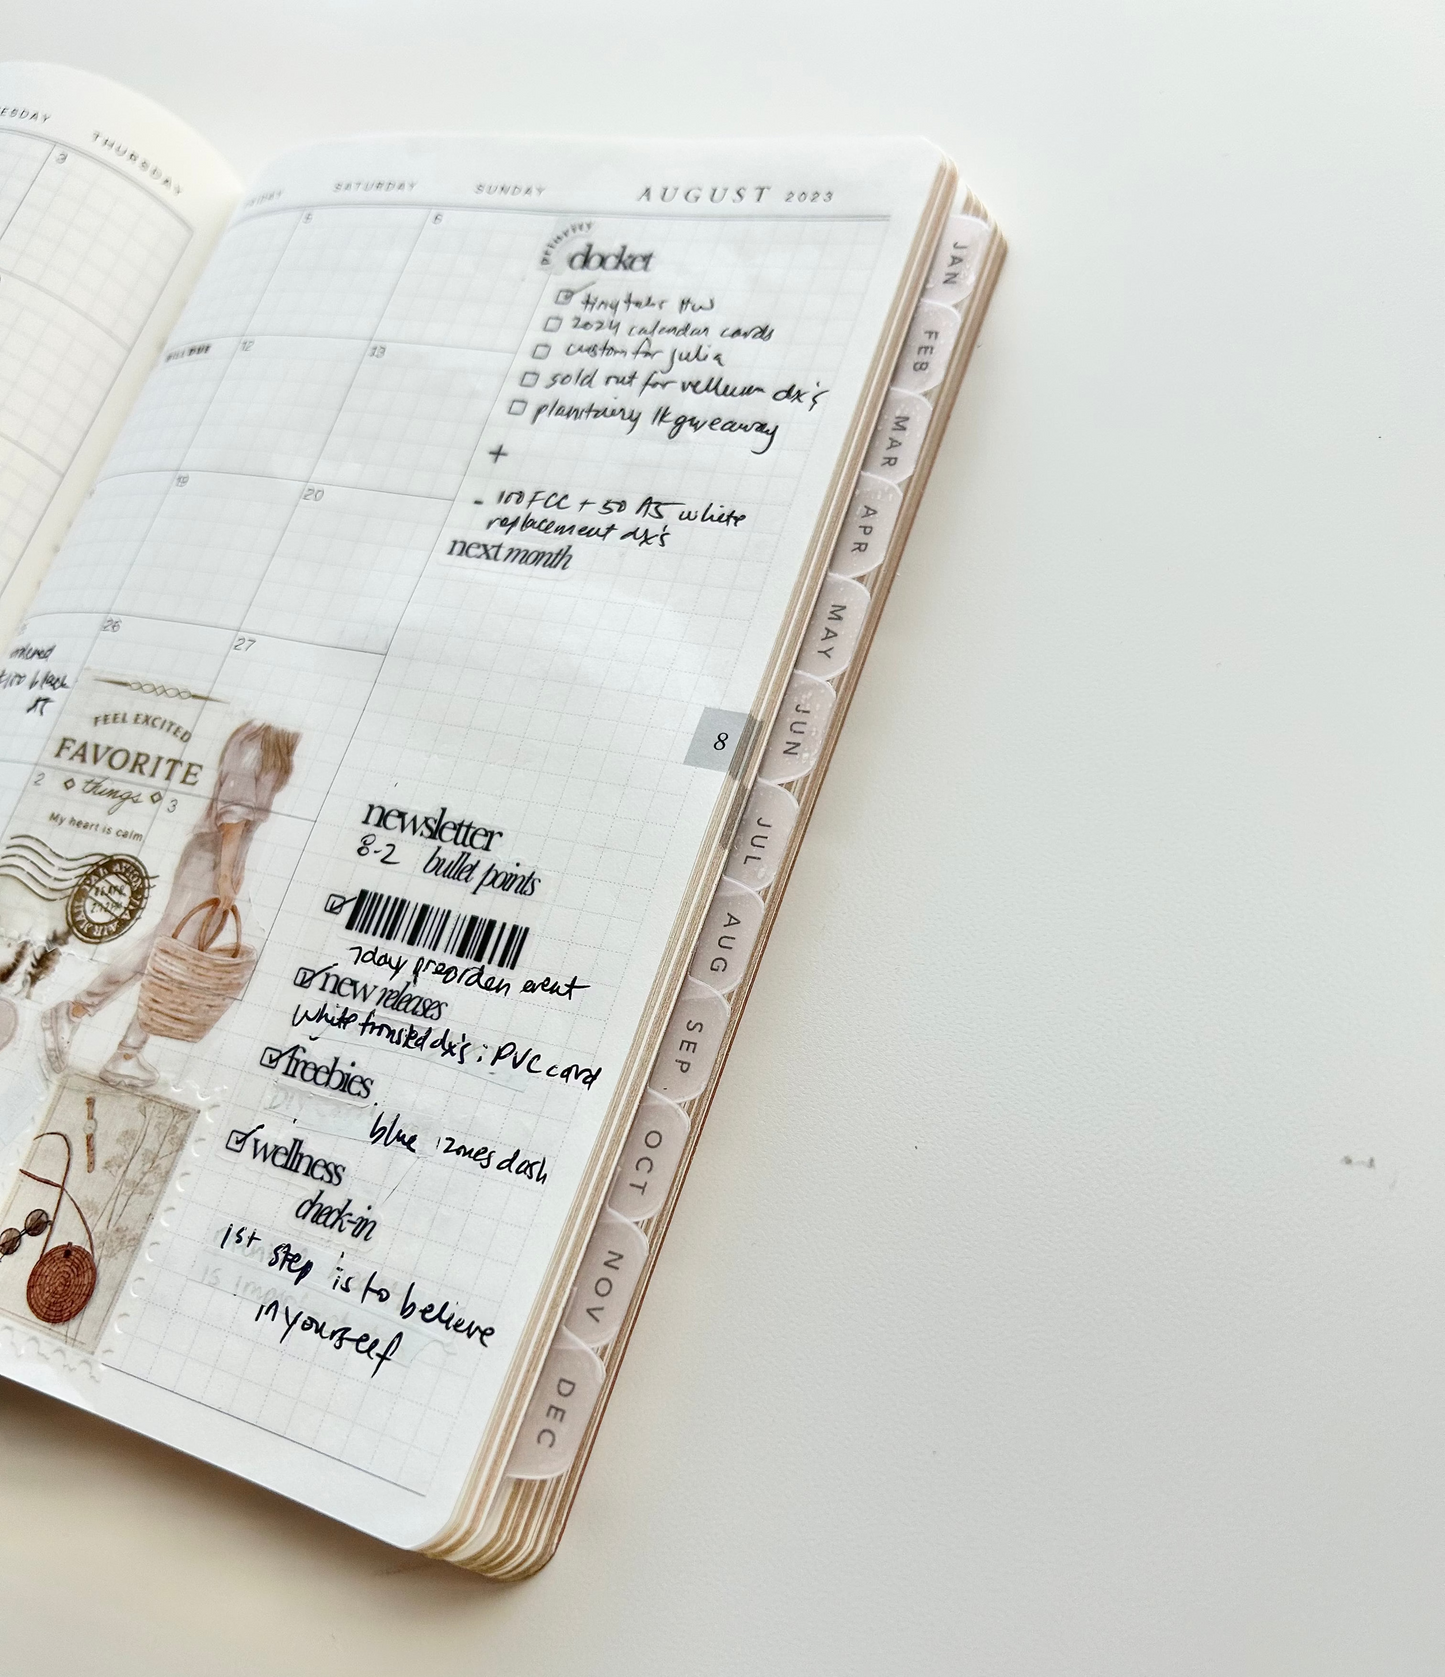 THURSDAY
3
SATURDAY
SUNDAY
AUGUST 2023
5
6
priority
docket
tiny tabs HW
2024 calendar cards
custom for julia
sold out for vellum dx's
1k giveaway
BILL DUE
12
13
+
- 100 FCC + 50 A5 white
replacement dx's
next month
19
20
26
27
ordered
black
FEEL EXCITED
FAVORITE
things
2
3
My heart is calm
PAR AVION
8
newsletter
8-2 bullet points
7day preorder event
new releases
white frosted dx's : PVC card
freebies
blue zones dash
wellness
check-in
1st step is to believe
in yourself
JAN
FEB
MAR
APR
MAY
JUN
JUL
AUG
SEP
OCT
NOV
DEC